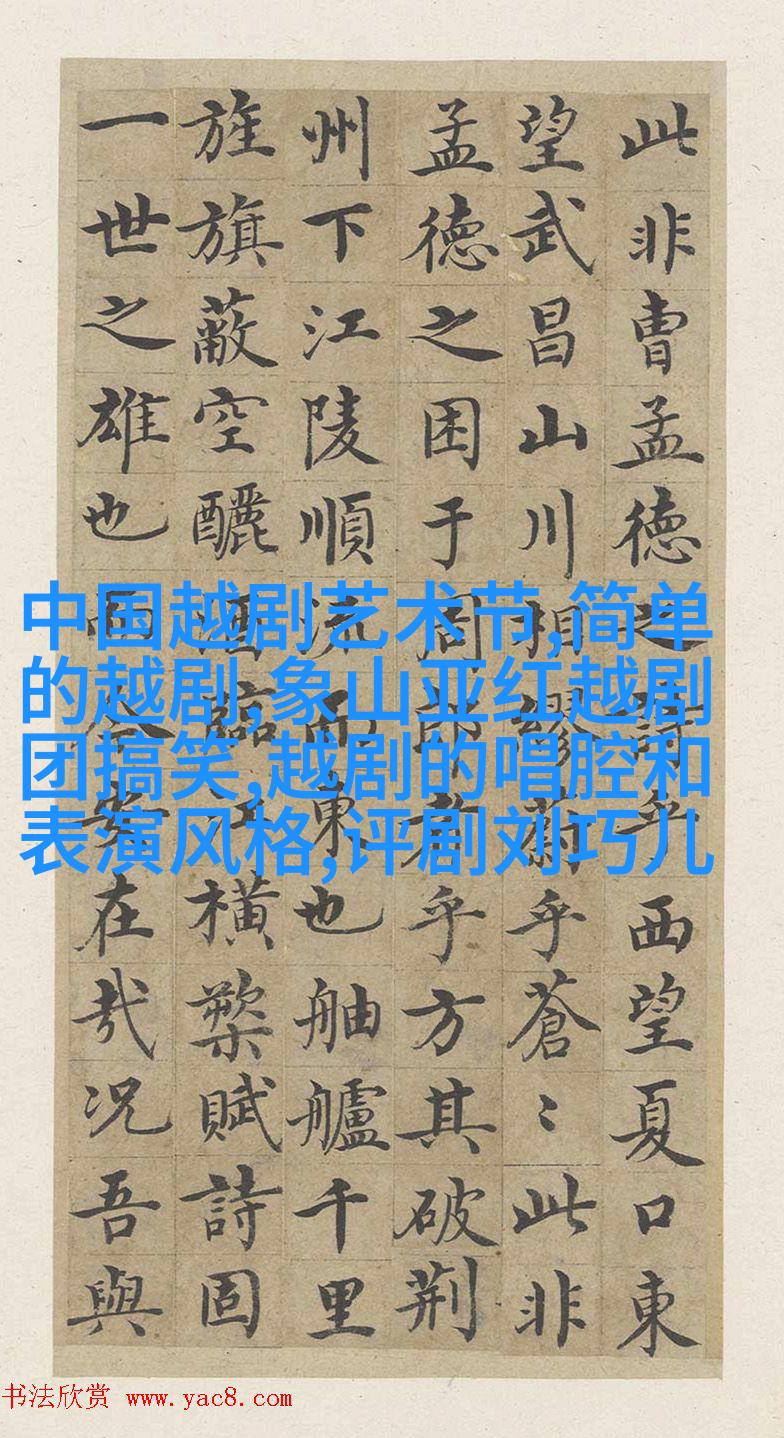 此非曹孟德之詩乎西望夏口東
望武昌山川相繆蔚乎蒼〻此非
孟德之困于周郎者乎方其破荆
州下江陵順流而東也舳艫千里
旌旗蔽空釃酒臨江橫槊賦詩固
一世之雄也而今安在哉況吾與
中国越剧艺术节,简单
的越剧,象山亚红越剧
团搞笑,越剧的唱腔和
表演风格,评剧刘巧儿
书法欣赏 www.yac8.com